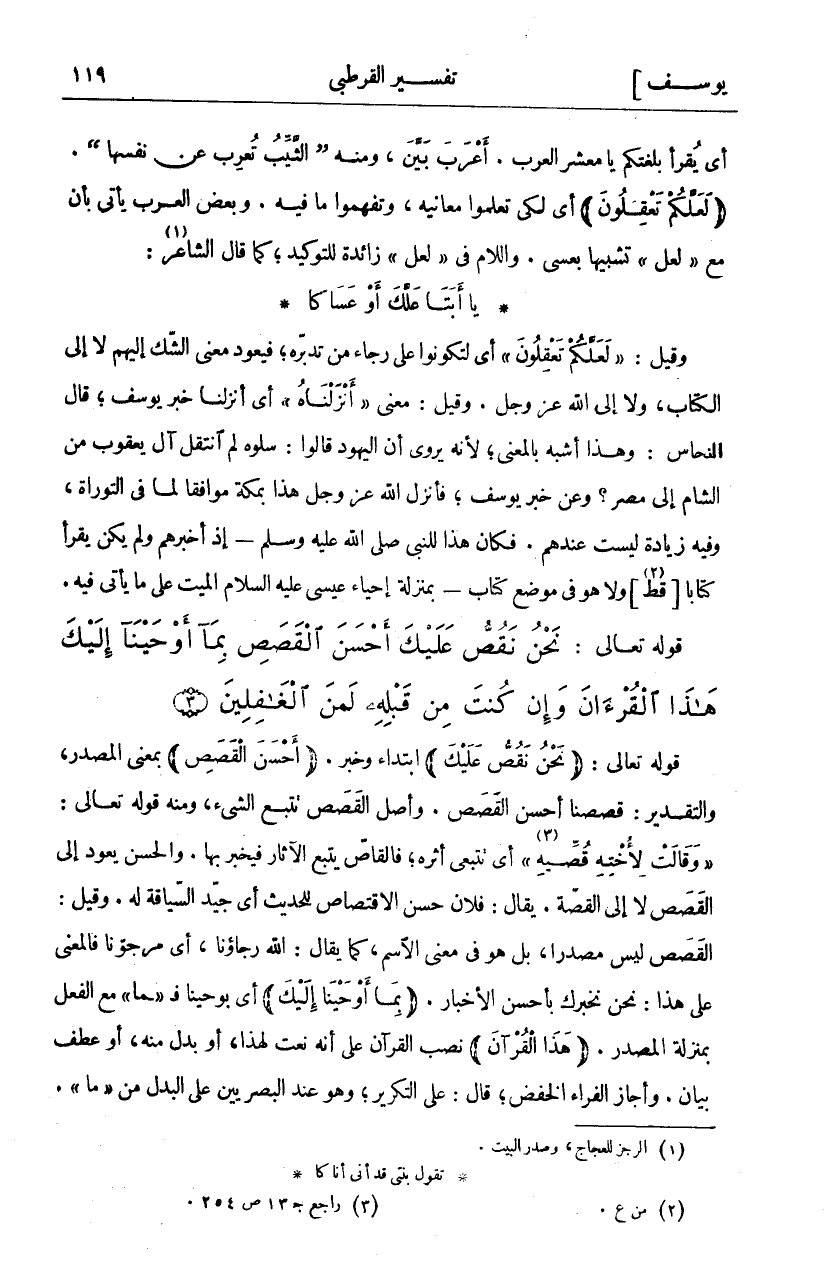 يوسف] تفسير القرطبي ١١٩
أى يُقرأ بلغتكم يا معشر العرب . أَعْرَبَ بَيَّن ، ومنه " الثَّيِّبُ تُعرِب عن نفسها " .
﴿ لَعَلَّكُمْ تَعْقِلُونَ ﴾ أى لكى تعلموا معانيه ، وتفهموا ما فيه . وبعض العرب يأتى بأن
مع « لعل » تشبيها بعسى . واللام فى « لعل » زائدة للتوكيد ؛ كما قال الشاعر (١) :
* يا أَبَتَا عَلَّكَ أَوْ عَسَاكا *
وقيل : « لَعَلَّكُمْ تَعْقِلُونَ » أى لتكونوا على رجاء من تدبّره ؛ فيعود معنى الشّك إليهم لا إلى
الكتاب ، ولا إلى الله عز وجل . وقيل : معنى « أَنْزَلْنَاهُ » أى أنزلنا خبر يوسف ؛ قال
النحاس : وهذا أشبه بالمعنى ؛ لأنه يروى أن اليهود قالوا : سلوه لم ٱنتقل آل يعقوب من
الشام إلى مصر ؟ وعن خبر يوسف ؛ فأنزل الله عز وجل هذا بمكة موافقا لما فى التوراة ،
وفيه زيادة ليست عندهم . فكان هذا للنبى صلى الله عليه وسلم — إذ أخبرهم ولم يكن يقرأ
كتابا [ قطّ ] (٢) ولا هو فى موضع كتاب — بمنزلة إحياء عيسى عليه السلام الميت على ما يأتى فيه .
قوله تعالى : نَحْنُ نَقُصُّ عَلَيْكَ أَحْسَنَ ٱلْقَصَصِ بِمَآ أَوْحَيْنَآ إِلَيْكَ
هَـٰذَا ٱلْقُرْءَانَ وَإِن كُنتَ مِن قَبْلِهِۦ لَمِنَ ٱلْغَـٰفِلِينَ ﴿٣﴾
قوله تعالى : ﴿ نَحْنُ نَقُصُّ عَلَيْكَ ﴾ ابتداء وخبر . ﴿ أَحْسَنَ الْقَصَصِ ﴾ بمعنى المصدر،
والتقدير : قصصنا أحسن القَصَص . وأصل القَصَص تتبع الشىء ، ومنه قوله تعالى :
« وَقَالَتْ لِأُخْتِهِ قُصِّيهِ » (٣) أى تتبعى أثره ؛ فالقاصّ يتبع الآثار فيخبر بها . والحسن يعود إلى
القَصَص لا إلى القصّة . يقال : فلان حسن الاقتصاص للحديث أى جيّد السّياقة له . وقيل :
القَصَص ليس مصدرا ، بل هو فى معنى الآسم ، كما يقال : الله رجاؤنا ، أى مرجوّنا فالمعنى
على هذا : نحن نخبرك بأحسن الأخبار . ﴿ بِمَا أَوْحَيْنَا إِلَيْكَ ﴾ أى بوحينا فـ «ـما» مع الفعل
بمنزلة المصدر . ﴿ هَذَا الْقُرْآنَ ﴾ نصب القرآن على أنه نعت لهذا ، أو بدل منه ، أو عطف
بيان . وأجاز الفراء الخفض ؛ قال : على التكرير ؛ وهو عند البصريين على البدل من « ما » .
(١) الرجز للعجاج ، وصدر البيت .
* تقول بنتى قد أنى أناكا *
(٢) من ع . (٣) راجع جـ ١٣ ص ٢٥٤ .